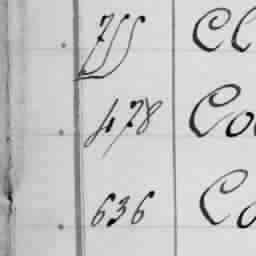 755 Cl
478 Co
636 Co